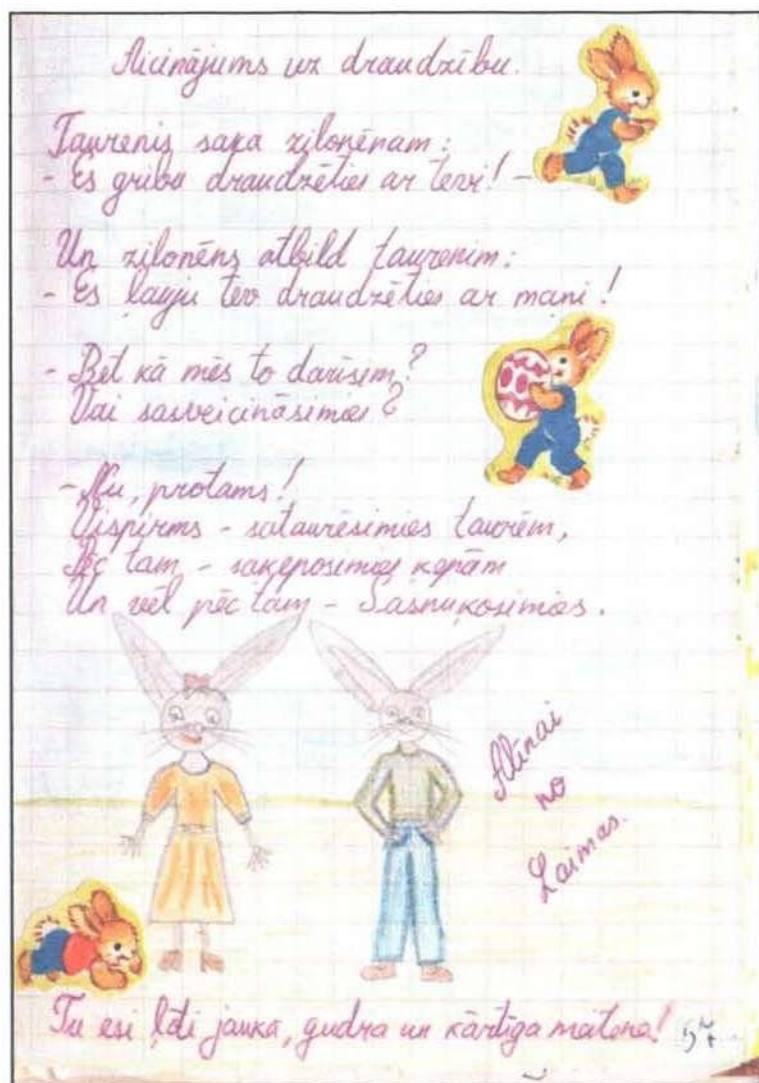 Aicinājums uz draudzību.
Taurenis saka zilonēnam:
- Es gribu draudzēties ar tevi! -
Un zilonēns atbild taurenim:
- Es ļauju tev draudzēties ar mani!
- Bet kā mēs to darīsim?
Vai sasveicināsimies?
- Nu, protams!
Vispirms - sataurēsimies taurēm,
Pēc tam - saķeposimies ķepām
Un vēl pēc tam - Sasnuķosimies.
Alīnai
no
Laimas.
Tu esi ļoti jauka, gudra un kārtīga meitene!